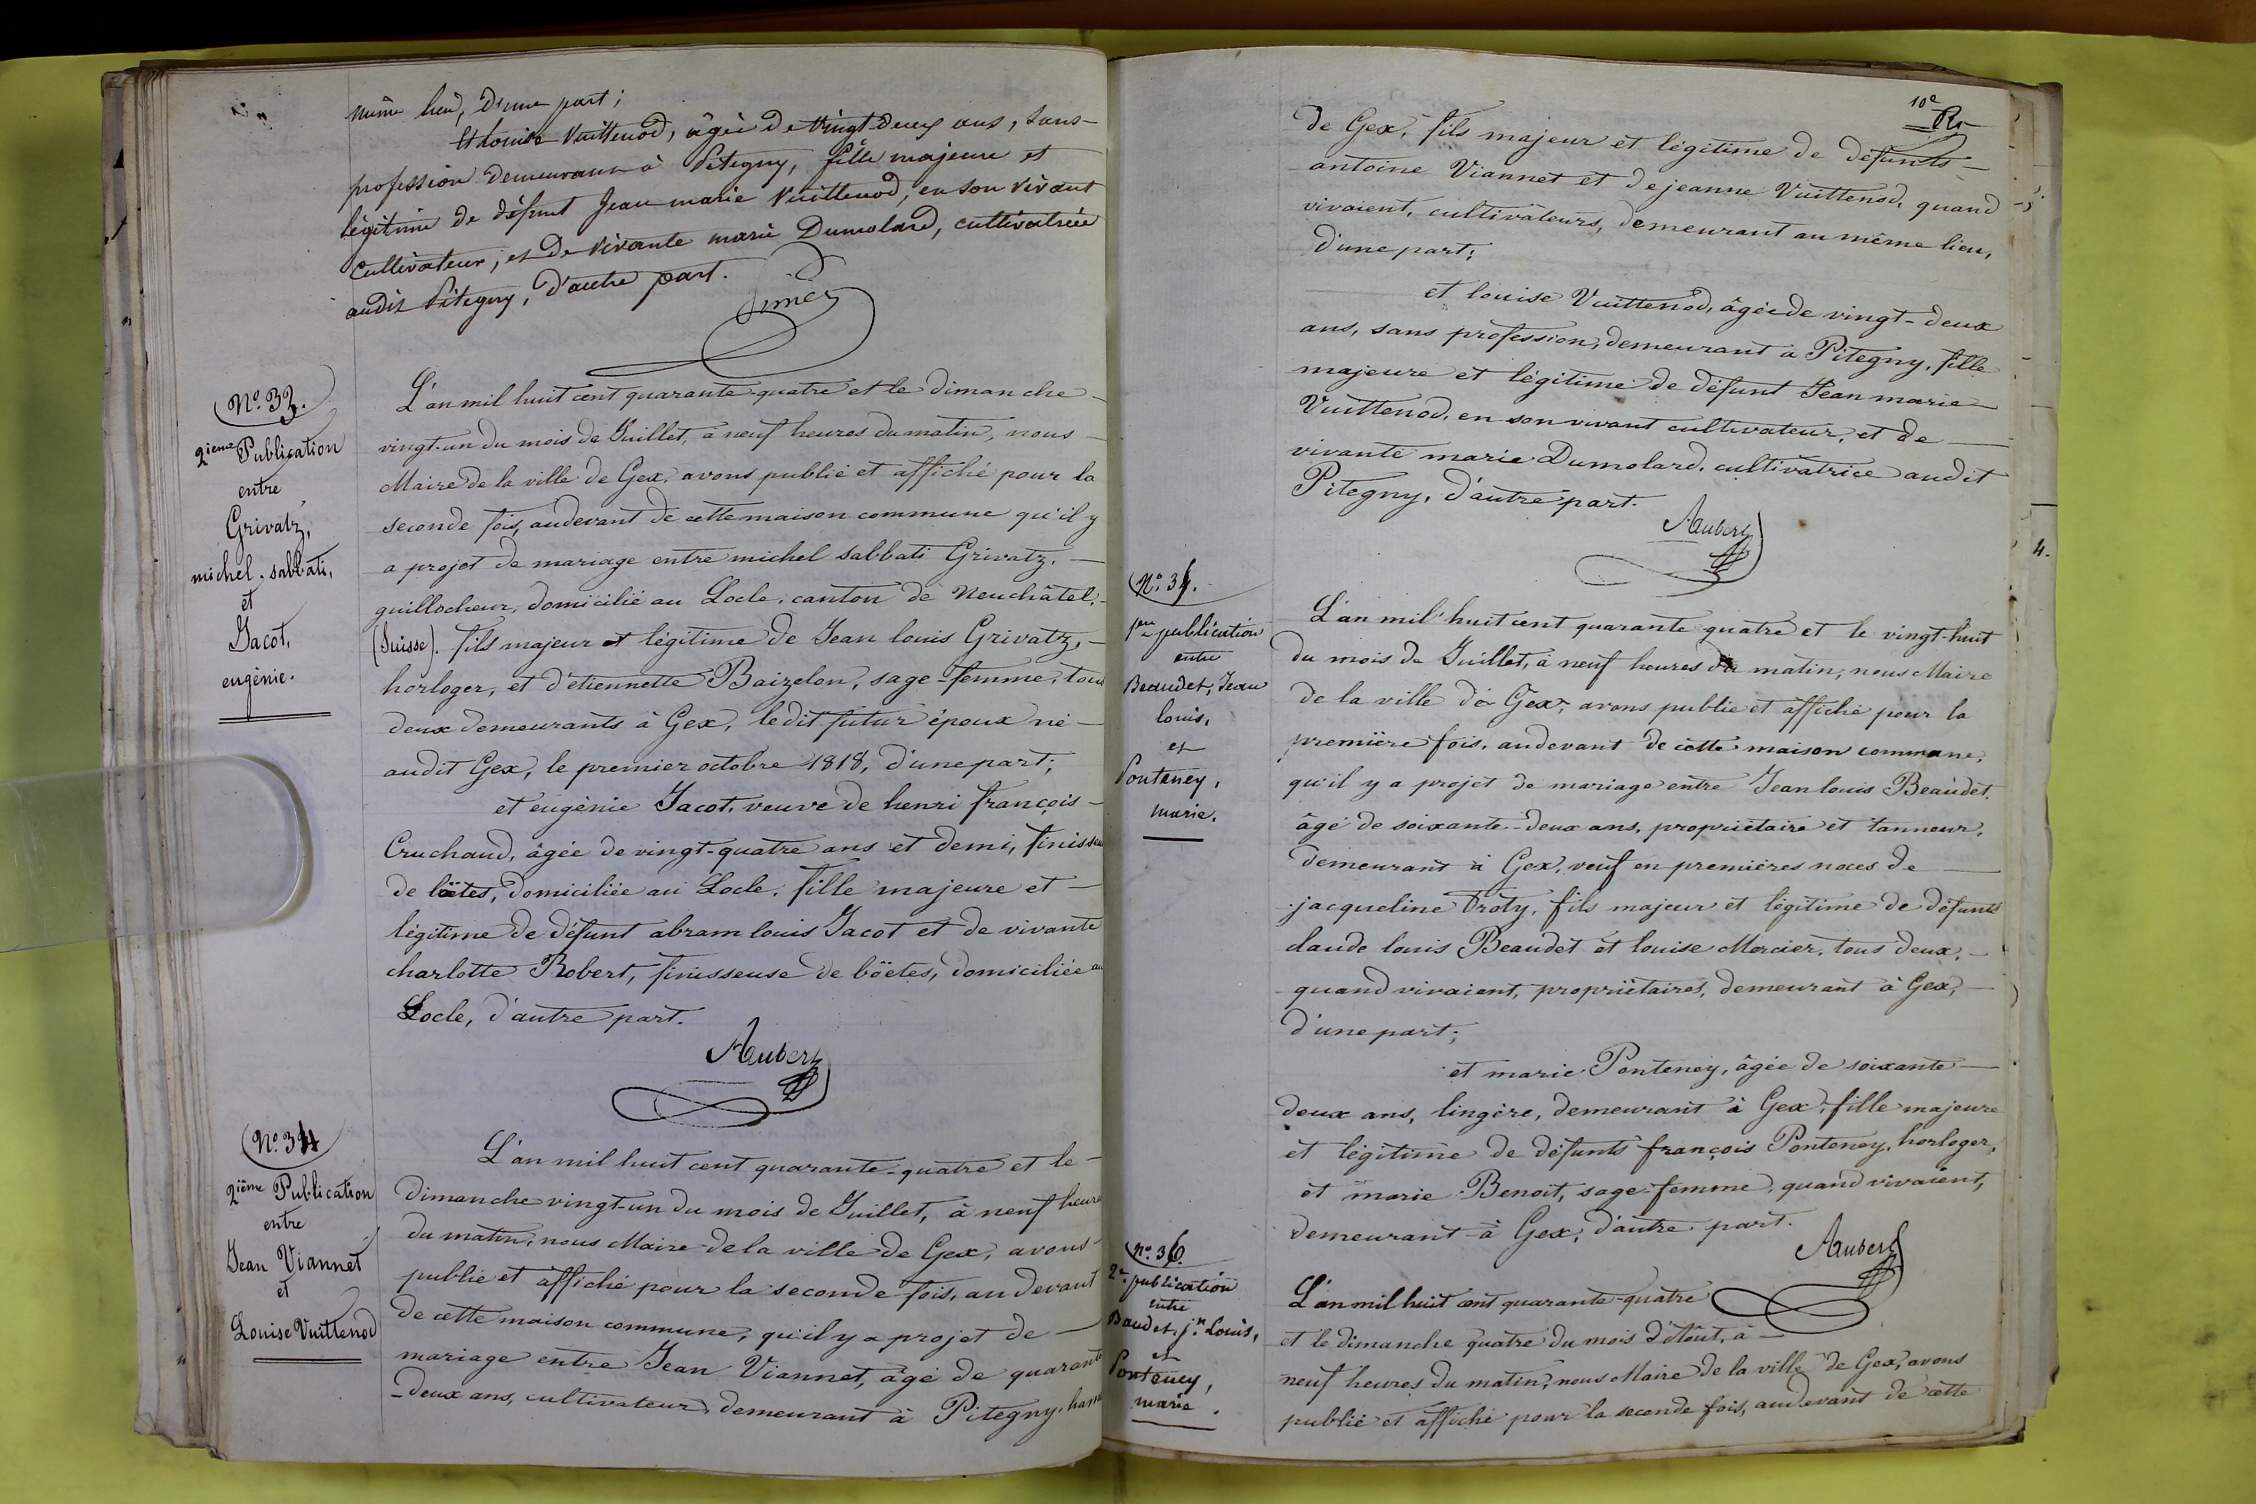 même lieu, d'une part;
Et Louise Vuittenod, âgée de vingt-deux ans, sans
profession demeurant à Pitegny, fille majeure et
légitime de défunt Jean-marie Vuittenod, en son vivant
cultivateur, et de vivante marie Dumolard, cultivatrice
audit Pitegny, d'autre part.
N.º 33.
2ième Publication
entre
Grivatz,
michel. sabbati,
et
Jacot,
eugènie.
L'an mil huit cent quarante-quatre et le dimanche
vingt-un du mois de Juillet, à neuf heures du matin, nous
Maire de la ville de Gex, avons publié et affiché pour la
seconde fois, audevant de cette maison commune qu'il y
a projet de mariage entre michel sabbati Grivatz,
guillocheur, domicilié au Locle, canton de Neuchâtel,
(Suisse). fils majeur et légitime de Jean louis Grivatz,
horloger, et d'étiennette Baizelon, sage-femme, tous
deux demeurants à Gex, ledit futur époux né
audit Gex, le premier octobre 1818, d'une part;
et eugènie Jacot, veuve de henri françois
Cruchaud, âgée de vingt-quatre ans et demi, finisseuse
de böetes, domiciliée au Locle, fille majeure et
légitime de défunt abram louis Jacot et de vivante
charlotte Robert, finisseuse de böetes, domiciliée au
Locle, d'autre part.
Aubert
N.º 34
2ième Publication
entre
Jean Viannet
et
Louise Vuittenod
L'an mil huit cent quarante-quatre et le
dimanche vingt-un du mois de Juillet, à neuf heures
du matin, nous Maire de la ville de Gex, avons
publié et affiché pour la seconde fois, audevant
de cette maison commune, qu'il y a projet de
mariage entre Jean Viannet, âgé de quarante
-deux ans, cultivateur, demeurant à Pitegny, hameau
10e
de Gex, fils majeur et légitime de défunts
antoine Viannet et de jeanne Vuittenod, quand
vivaient, cultivateurs, demeurant au même lieu,
d'une part;
et louise Vuittenod, âgée de vingt-deux
ans, sans profession, demeurant à Pitegny, fille
majeure et légitime de défunt Jean marie
Vuittenod, en son vivant cultivateur, et de
vivante marie Dumolard, cultivatrice audit
Pitegny, d'autre part.
Aubert
publication
entre
Beaudet, Jean
louis,
et
Ponteney,
marie.
L'an mil huit cent quarante quatre et le vingt-huit
du mois de Juillet, à neuf heures du matin, nous Maire
de la ville de Gex, avons publié et affiché pour la
première fois, audevant de cette maison commune,
qu'il y a projet de mariage entre Jean louis Beaudet,
âgé de soixante-deux ans, propriétaire et tanneur,
demeurant à Gex, veuf en premières noces de
jacqueline Proty, fils majeur et légitime de défunts
claude louis Beaudet et louise Mercier, tous deux,
quand vivaient, propriétaires, demeurant à Gex,
d'une part;
et marie Ponteney, âgée de soixante
deux ans, lingère, demeurant à Gex, fille majeure
et légitime de défunts françois Ponteney, horloger,
et marie Benoit, sage-femme, quand vivaient,
demeurant à Gex, d'autre part.
Aubert
N.º 36.
2e publication
entre
Baudet, jn Louis,
et
Ponteney,
marie.
L'an mil huit cent quarante-quatre
et le dimanche quatre du mois d'Août, à
neuf heures du matin, nous Maire de la ville de Gex, avons
publié et affiché pour la seconde fois, audevant de cette
4.